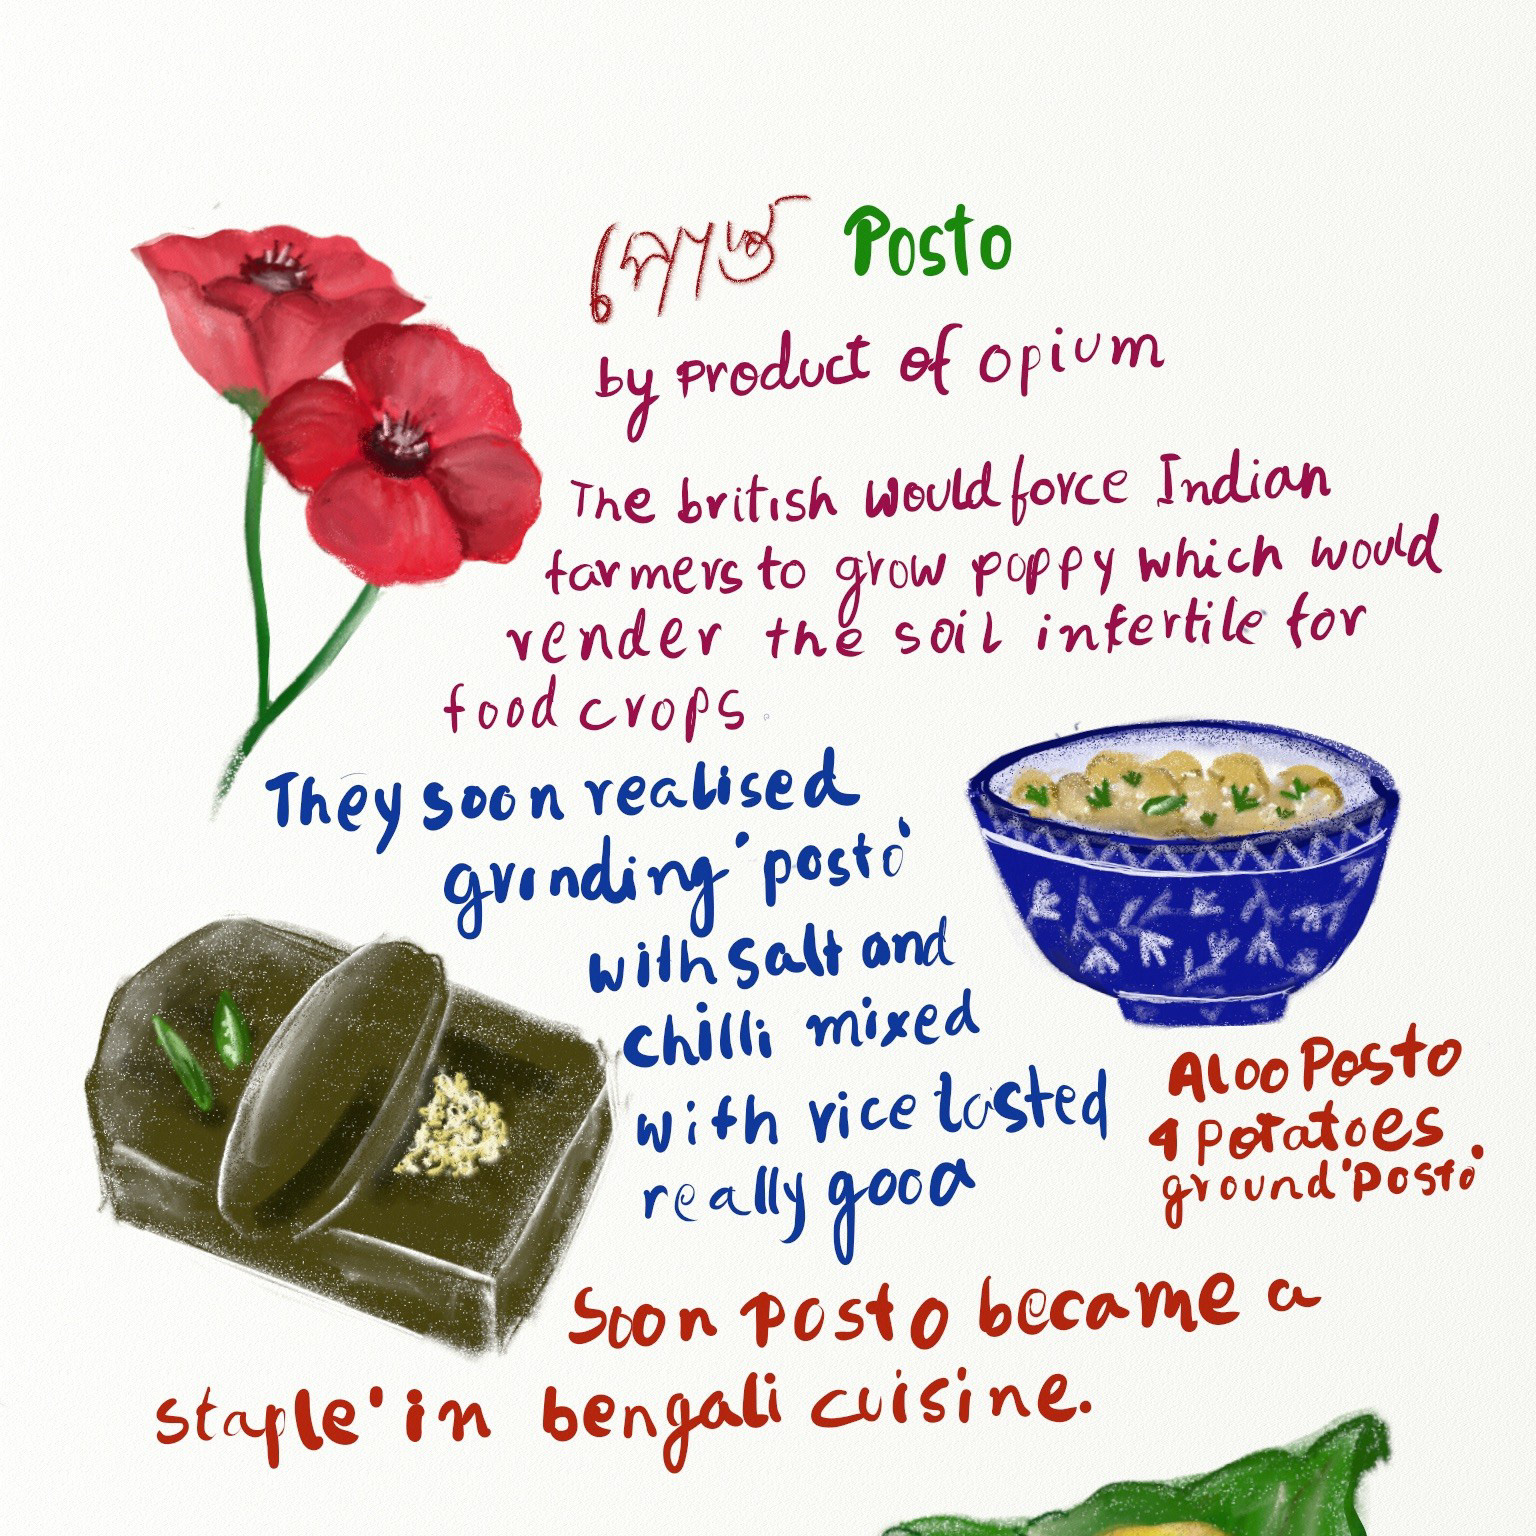 পোস্ত Posto
by product of opium
The british would force Indian
farmers to grow poppy which would
render the soil infertile for
food crops
They soon realised
grinding 'posto'
with salt and
chilli mixed
with rice tasted
really good
Aloo Posto
4 potatoes
ground 'Posto'
Soon posto became a
staple' in bengali cuisine.